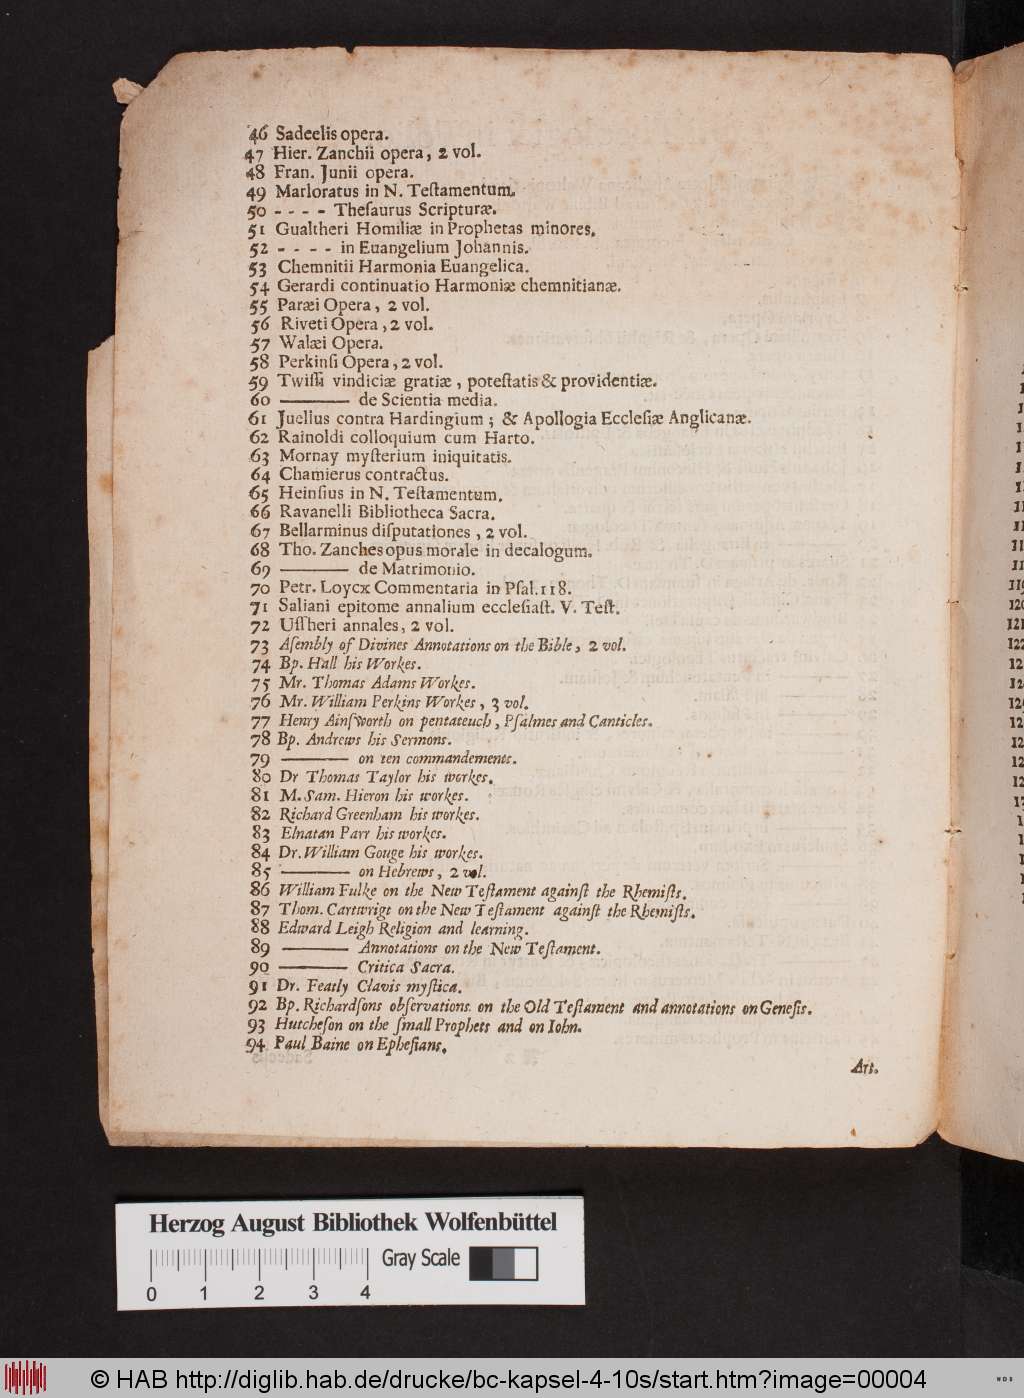 46 Sadeelis opera.
47 Hier. Zanchii opera, 2 vol.
48 Fran. Junii opera.
49 Marloratus in N. Teſtamentum.
50 - - - - Theſaurus Scripturæ.
51 Gualtheri Homiliæ in Prophetas minores.
52 - - - - in Euangelium Johannis.
53 Chemnitii Harmonia Euangelica.
54 Gerardi continuatio Harmoniæ chemnitianæ.
55 Paræi Opera, 2 vol.
56 Riveti Opera, 2 vol.
57 Walæi Opera.
58 Perkinſi Opera, 2 vol.
59 Twiſſi vindiciæ gratiæ, poteſtatis & providentiæ.
60 ——— de Scientia media.
61 Juellus contra Hardingium; & Apollogia Eccleſiæ Anglicanæ.
62 Rainoldi colloquium cum Harto.
63 Mornay myſterium iniquitatis.
64 Chamierus contractus.
65 Heinſius in N. Teſtamentum.
66 Ravanelli Bibliotheca Sacra.
67 Bellarminus diſputationes, 2 vol.
68 Tho. Zanches opus morale in decalogum.
69 ——— de Matrimonio.
70 Petr. Loycx Commentaria in Pſal. 118.
71 Saliani epitome annalium eccleſiaſt. V. Teſt.
72 Uſſheri annales, 2 vol.
73 Aſembly of Divines Annotations on the Bible, 2 vol.
74 Bp. Hall his Workes.
75 Mr. Thomas Adams Workes.
76 Mr. William Perkins Workes, 3 vol.
77 Henry Ainſworth on pentateuch, Pſalmes and Canticles.
78 Bp. Andrews his Sermons.
79 ——— on ten commandements.
80 Dr Thomas Taylor his workes.
81 M. Sam. Hieron his workes.
82 Richard Greenham his workes.
83 Elnatan Parr his workes.
84 Dr. William Gouge his workes.
85 ——— on Hebrews, 2 vol.
86 William Fulke on the New Teſtament againſt the Rhemiſts.
87 Thom. Cartwrigt on the New Teſtament againſt the Rhemiſts.
88 Edward Leigh Religion and learning.
89 ——— Annotations on the New Teſtament.
90 ——— Critica Sacra.
91 Dr. Featly Clavis myſtica.
92 Bp. Richardſons obſervations on the Old Teſtament and annotations on Geneſis.
93 Hutcheſon on the ſmall Prophets and on Iohn.
94 Paul Baine on Epheſians.
Art.
Herzog August Bibliothek Wolfenbüttel
Gray Scale
0 1 2 3 4
© HAB http://diglib.hab.de/drucke/bc-kapsel-4-10s/start.htm?image=00004